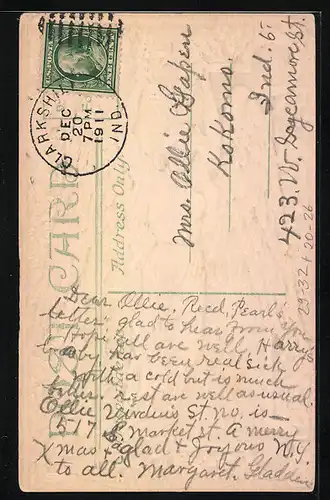 U.S. POSTAGE
ONE CENT
CLARKSHILL
DEC
20
7 PM
1911
IND.
POST CARD
Address Only
Mrs. Ollie Gapen
Kokomo
Ind.
423. W. Sycamore St.
29-32 + 20-26
Dear Ollie. Recd. Pearl's
letter glad to hear from you
& Hope all are well Harry's
baby has been real sick
with a cold but is much
better. rest are well as usual.
Ollie St. no. is
517 market st. A merry
Xmas & glad & Joyous N.Y.
to all. Margaret.